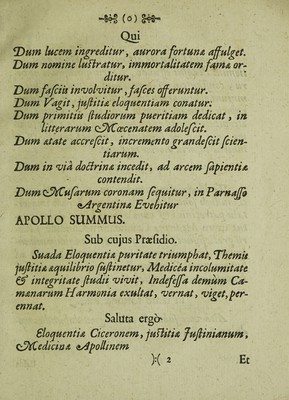 (o)
Qui
Dum lucem ingreditur, aurora fortunæ affulget.
Dum nomine lustratur, immortalitatem famæ or-
ditur.
Dum fasciis involvitur, fasces offeruntur.
Dum Vagit, justitiæ eloquentiam conatur:
Dum primitiis studiorum pueritiam dedicat, in
litterarum Mœcenatem adolescit.
Dum ætate accrescit, incremento grandescit scien-
tiarum.
Dum in viâ doctrinæ incedit, ad arcem sapientiæ
contendit.
Dum Musarum coronam sequitur, in Parnasso
Argentinæ Evehitur
APOLLO SUMMUS.
Sub cujus Præsidio.
Suada Eloquentiæ puritate triumphat, Themis
justitiæ æquilibrio sustinetur, Medicéa incolumitate
& integritate studii vivit, Indefessa demùm Ca-
mænarum Harmonia exultat, vernat, viget, per-
ennat.
Saluta ergò
Eloquentiæ Ciceronem, justitiæ Justinianum,
Medicinæ Apollinem
):( 2 Et